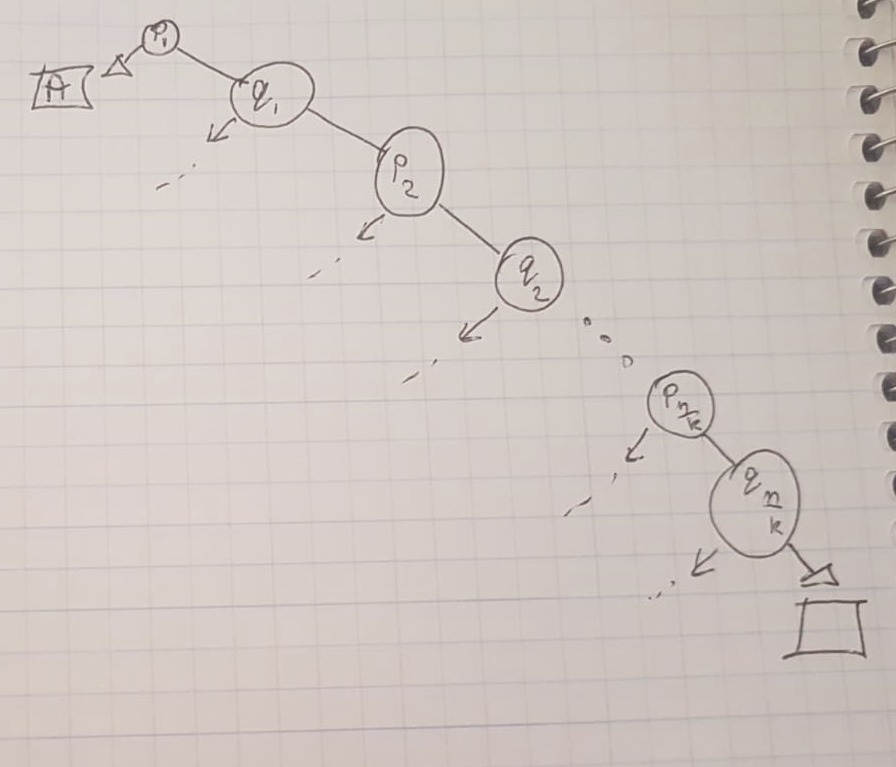 P₁
A
q₁
P₂
q₂
P n/k
q n/k